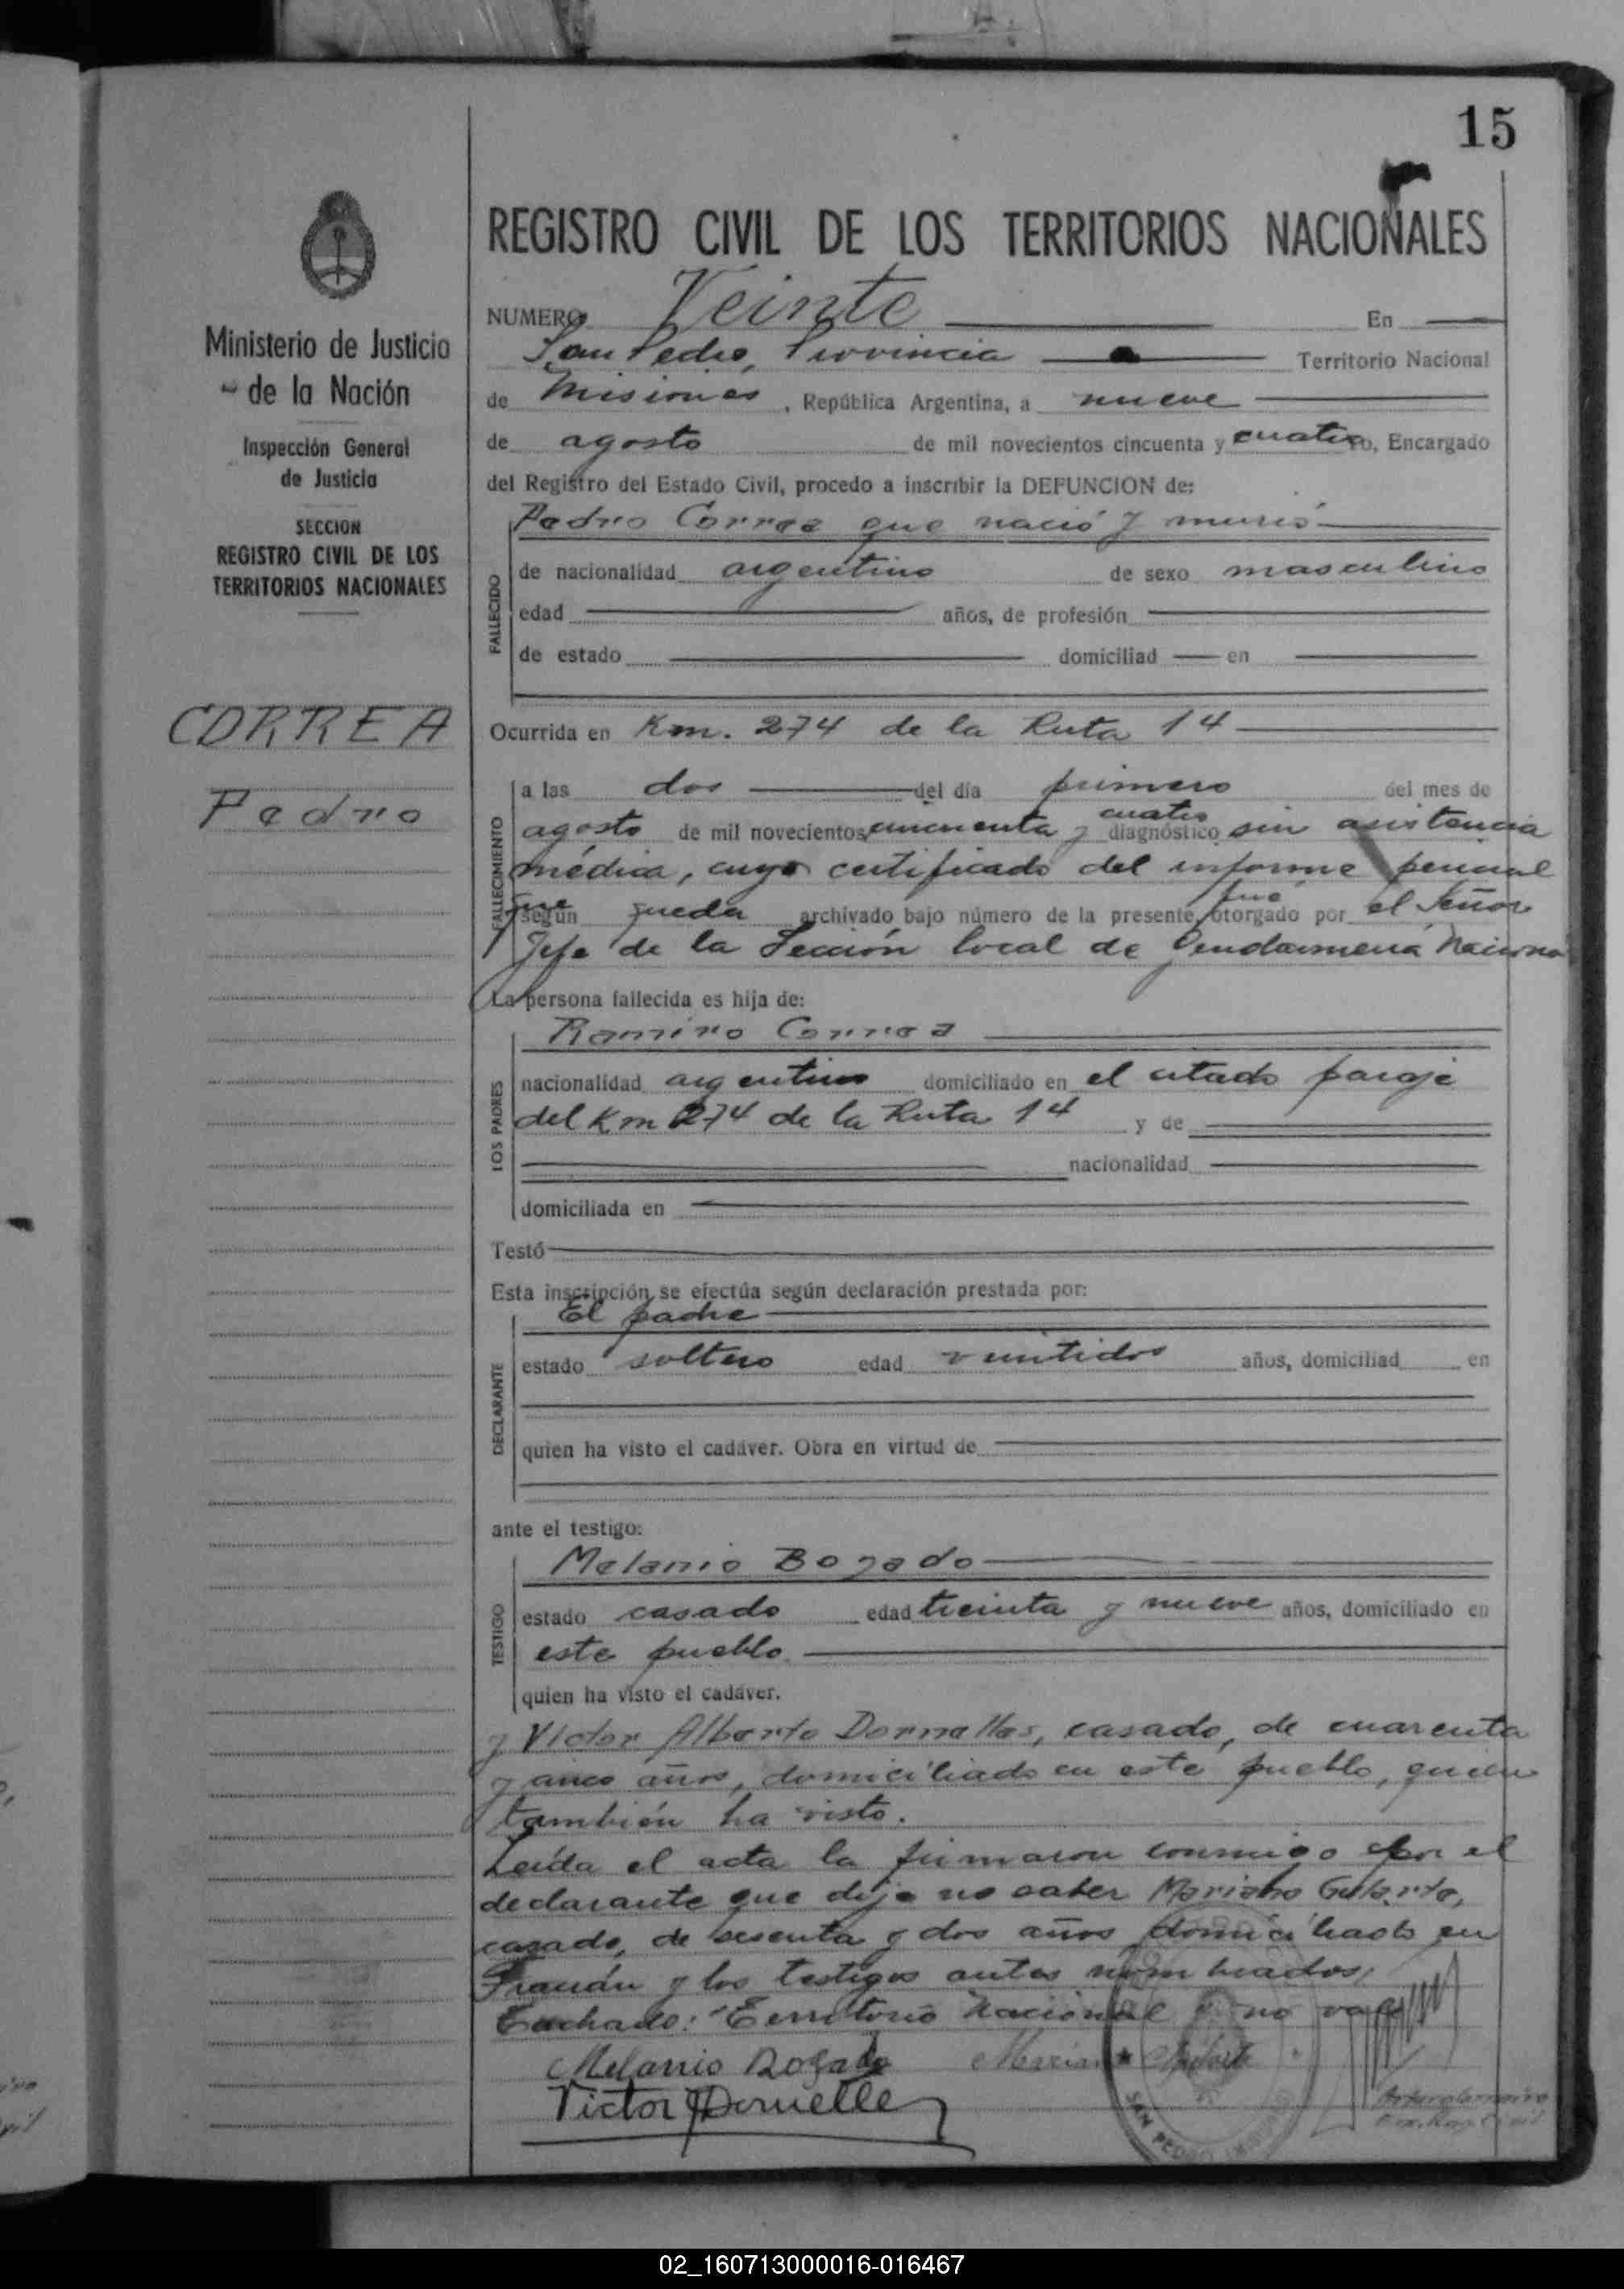 15
REGISTRO CIVIL DE LOS TERRITORIOS NACIONALES
Ministerio de Justicia
de la Nación
Inspección General
de Justicia
SECCION
REGISTRO CIVIL DE LOS
TERRITORIOS NACIONALES
CORREA
Pedro
NUMERO Veinte En
San Pedro, Provincia Territorio Nacional
de Misiones, República Argentina, a nueve
de agosto de mil novecientos cincuenta y cuatro, Encargado
del Registro del Estado Civil, procedo a inscribir la DEFUNCION de:
Pedro Correa que nació y murió
FALLECIDO
de nacionalidad argentino de sexo masculino
edad años, de profesión
de estado domiciliad en
Ocurrida en Km. 274 de la Ruta 14
FALLECIMIENTO
a las dos del día primero del mes de
agosto de mil novecientos cincuenta y cuatro diagnóstico sin asistencia
médica, cuyo certificado del informe pericial
que según queda archivado bajo número de la presente, fué otorgado por el Señor
Jefe de la Sección local de Gendarmería Naciona
La persona fallecida es hija de:
Ramiro Correa
LOS PADRES
nacionalidad argentino domiciliado en el citado paraje
del Km 274 de la Ruta 14 y de
nacionalidad
domiciliada en
Testó
Esta inscripción se efectúa según declaración prestada por:
El padre
DECLARANTE
estado soltero edad veintidos años, domiciliad en
quien ha visto el cadáver. Obra en virtud de
ante el testigo:
Melanio Bogado
TESTIGO
estado casado edad treinta y nueve años, domiciliado en
este pueblo.
quien ha visto el cadáver.
y Victor Alberto Dornelles, casado, de cuarenta
y cinco años, domiciliado en este pueblo, quien
también ha visto.
Leída el acta la firmaron conmigo por el
declarante que dijo no saber Mariano
casado, de sesenta y dos años domiciliado en
y los testigos antes nombrados.
Tachado: "Territorio Nacional" no vale
Melanio Bogado
Victor Dornelles
SAN PEDRO
02_160713000016-016467